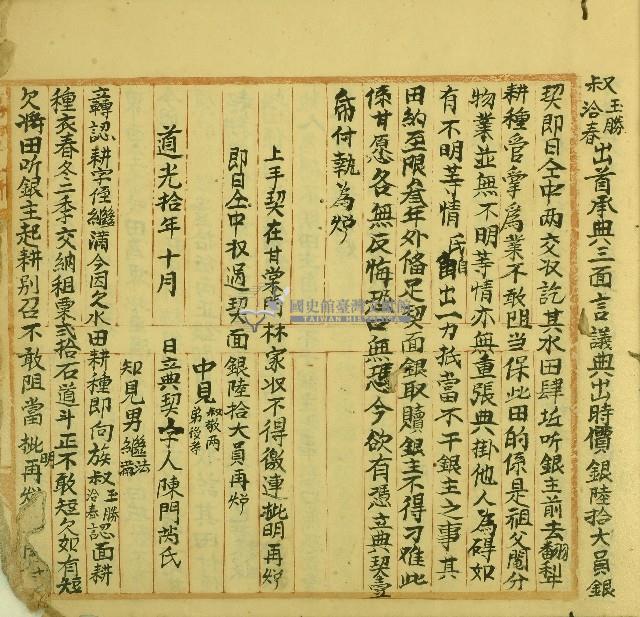 叔玉勝洽春出首承典三面言議典出時價銀陸拾大員銀
契即日仝中兩交收訖其水田肆坵听銀主前去翻犁
耕種管掌為業不敢阻当保此田的係是祖父鬮分
物業並無不明等情亦無重張典掛他人為碍如
有不明等情氏自出一力抵當不干銀主之事其
田約至限叁年外俻足契面銀取贖銀主不得刁难此
係甘愿各無反悔恐口無憑今欲有憑立典契壹
帋付執為炤
上手契在甘棠 林家收不得繳連批明再炤
即日仝中收過契面銀陸拾大員再炤
中見叔敬兩弟後孝
道光拾年十月 日立典契字人陳門芮氏
知見男繼法繼滿
立轉認耕字侄繼滿今因欠水田耕種即向族叔玉勝洽春認面耕
種衣春冬二季交納租粟貳拾石道斗正不敢短欠如有短
欠將田听銀主起耕别召不敢阻當批明再炤
國史館臺灣文獻館
TAIWAN HISTORICA